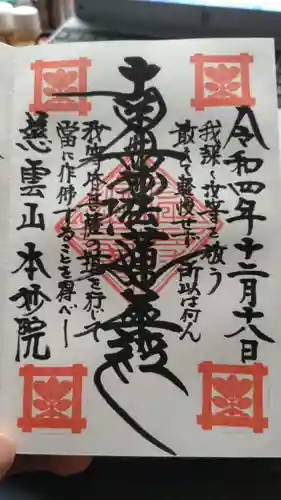 令和四年十二月十八日
我深く汝等を敬う
敢えて軽慢せず所以は何ん
南無妙法蓮華経
汝等皆菩薩の道を行じて
当に作仏することを得べし
慈雲山本妙院